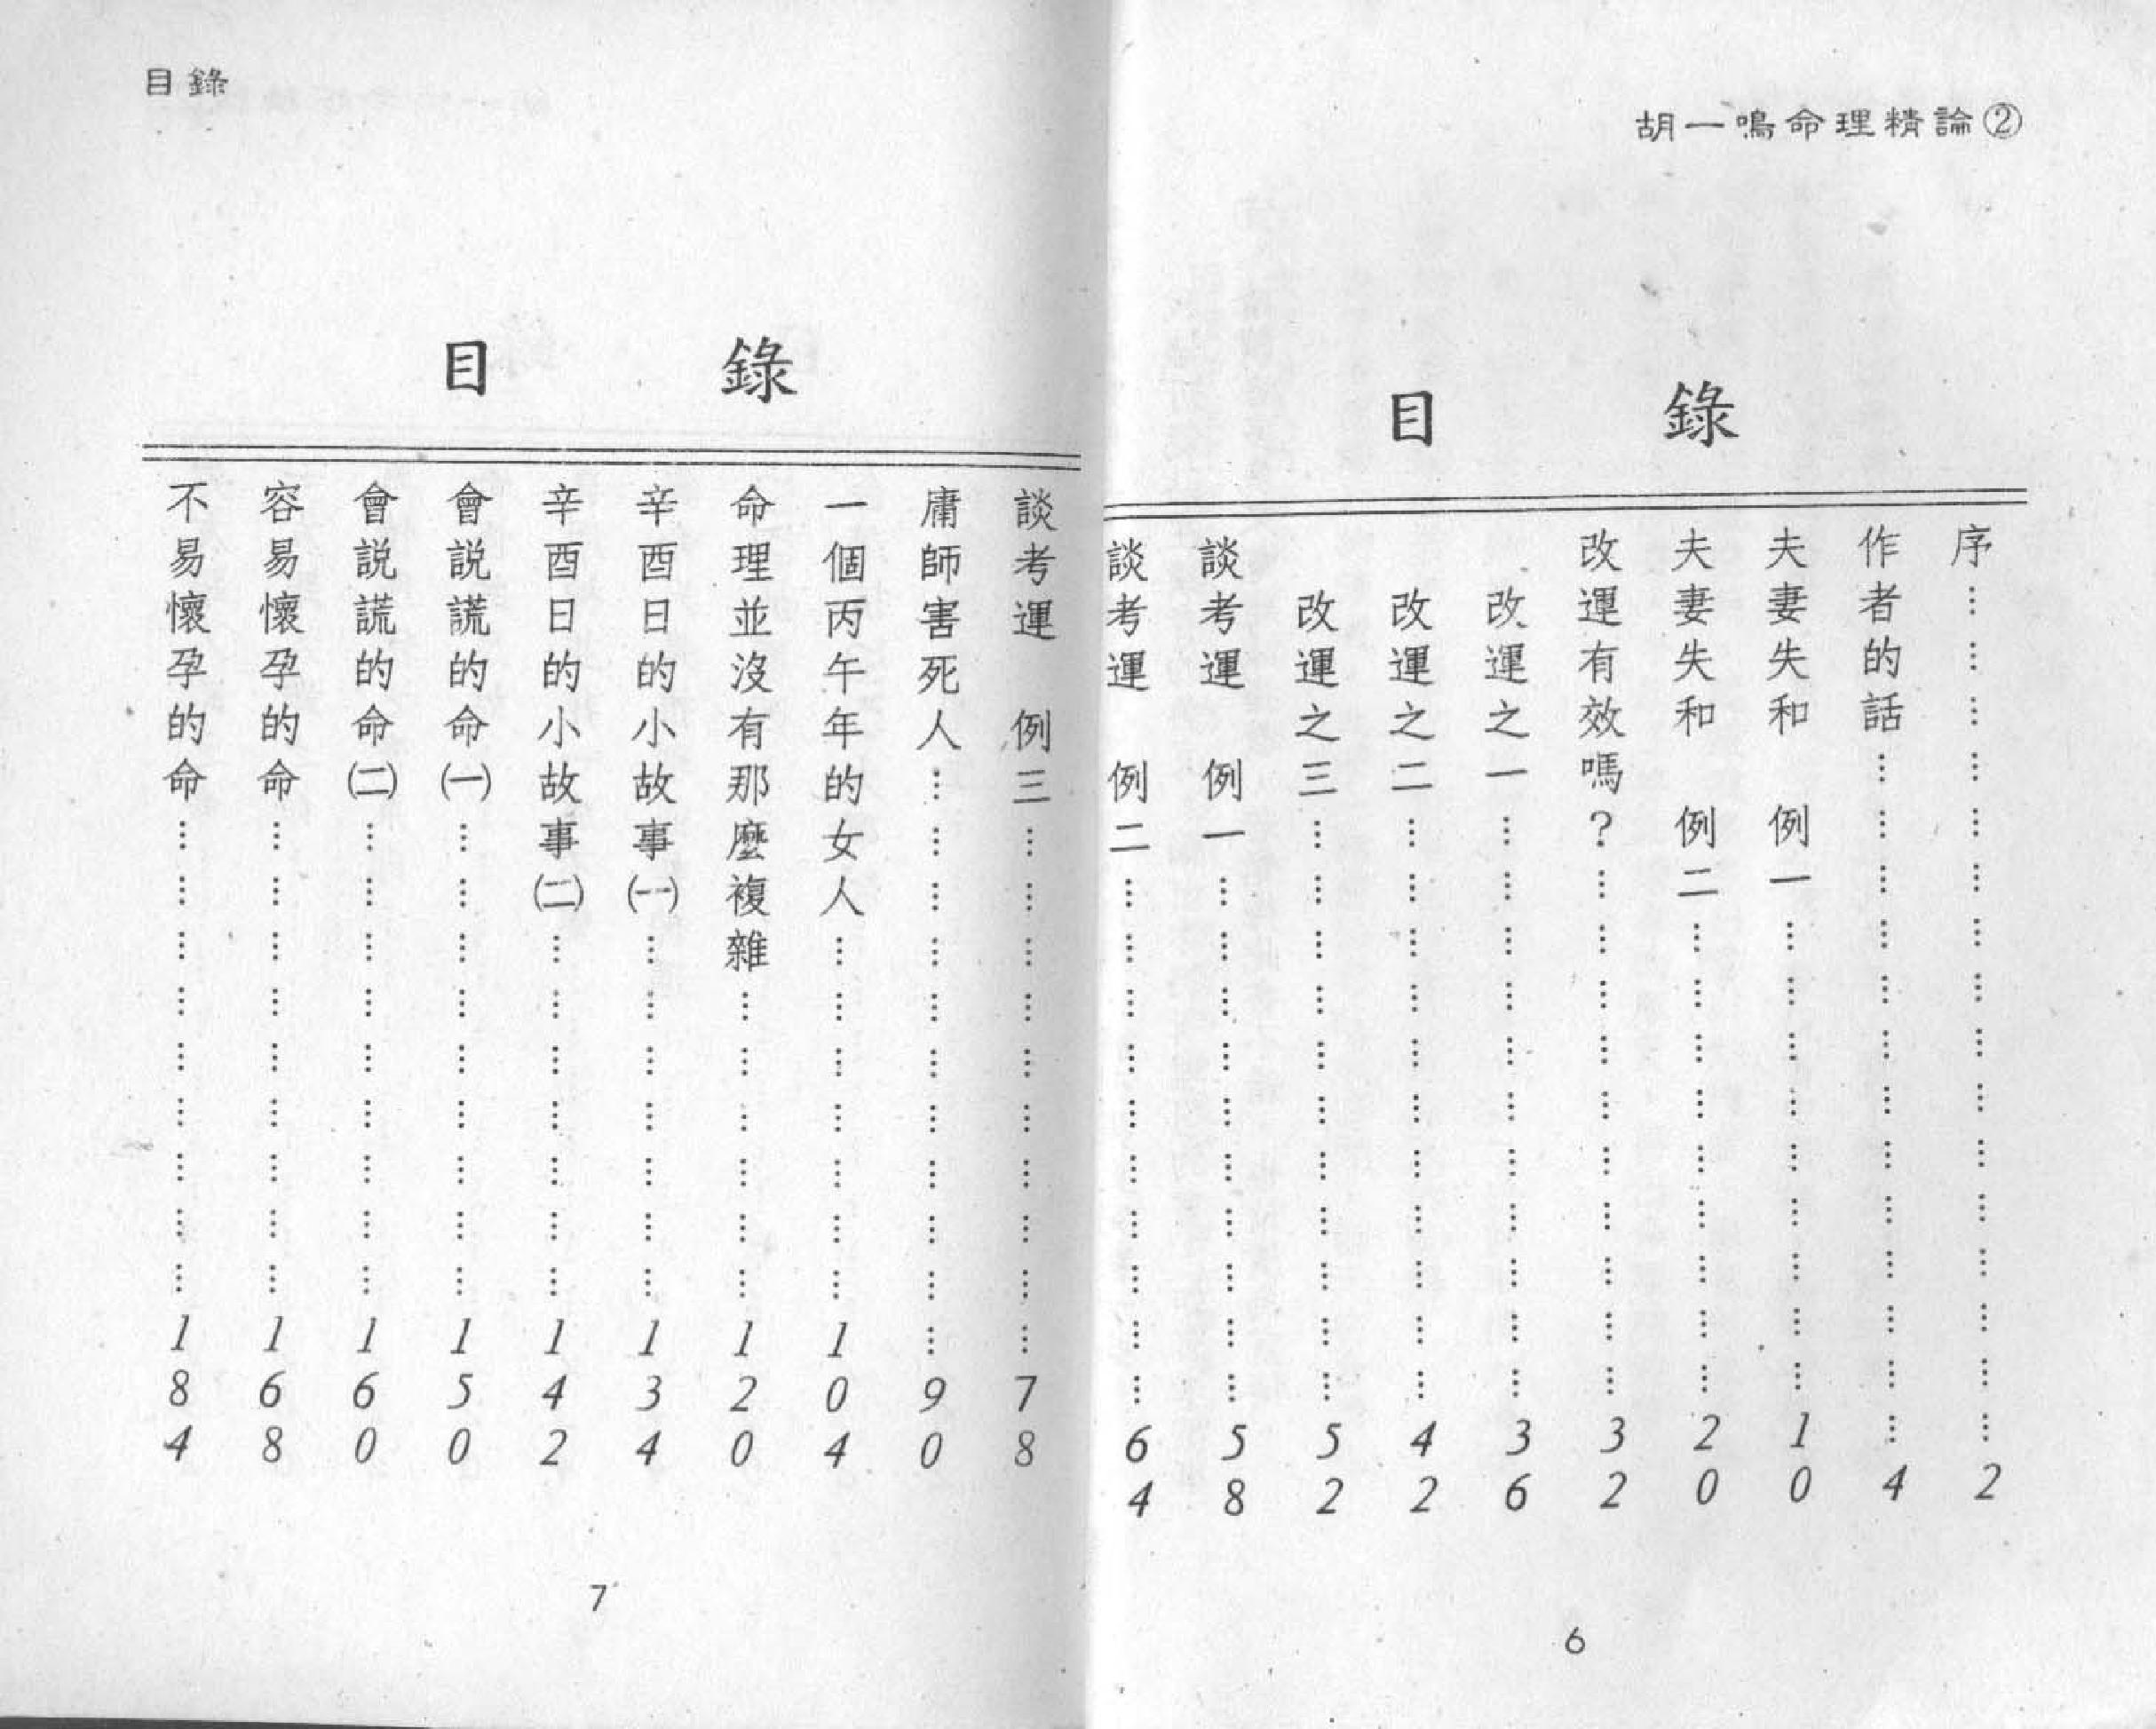 胡一鳴命理精論②
目錄
序………………………………………………2
作者的話…………………………………4
夫妻失和　例一…………………………10
夫妻失和　例二…………………………20
改運有效嗎？……………………………32
改運之一…………………………………36
改運之二…………………………………42
改運之三…………………………………52
談考運　例一……………………………58
談考運　例二……………………………64
6
目錄
目錄
談考運　例三……………………………78
庸師害死人………………………………90
一個丙午年的女人………………………104
命理並沒有那麼複雜……………………120
辛酉日的小故事㈠………………………134
辛酉日的小故事㈡………………………142
會說謊的命㈠……………………………150
會說謊的命㈡……………………………160
容易懷孕的命……………………………168
不易懷孕的命……………………………184
7